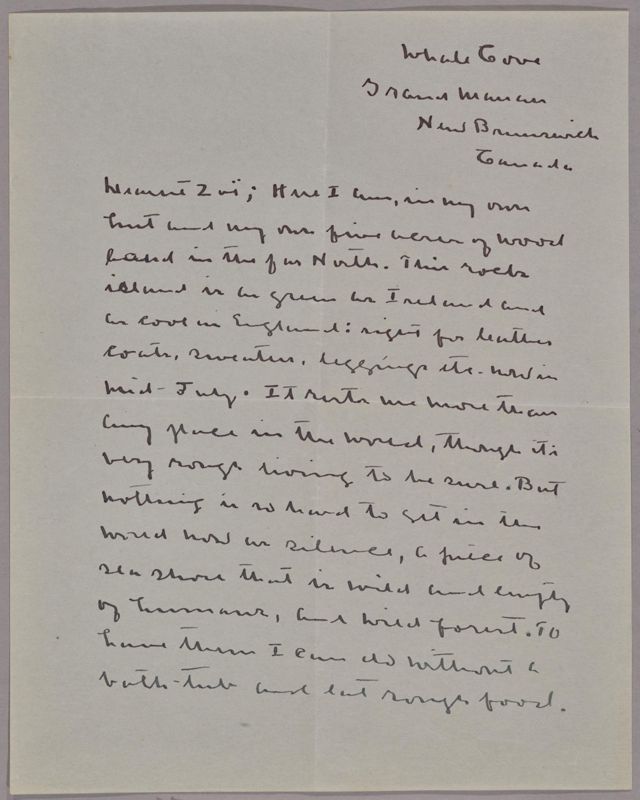 Whale Cove
Grand Manan
New Brunswick
Canada
Dearest Zoë; Here I am, in my own
hut and my own five acres of wood
land in the far North. This rock
island is as green as Ireland and
as cool as England: right for leather
coats, sweaters, leggings etc. now in
mid-July. It rests me more than
any place in the world, though it's
very rough living to be sure. But
nothing is so hard to get in the
world now as silence, a piece of
sea shore that is wild and empty
of humans, and wild forest. To
have them I can do without a
bath-tub and eat rough food.